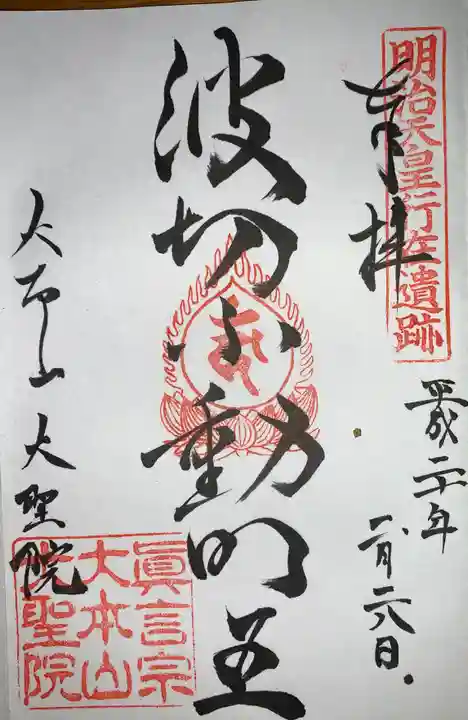 明治天皇行在遺跡
奉拝
平成二十年
二月二八日
波切不動明王
大本山大聖院
眞言宗
大本山
大聖院